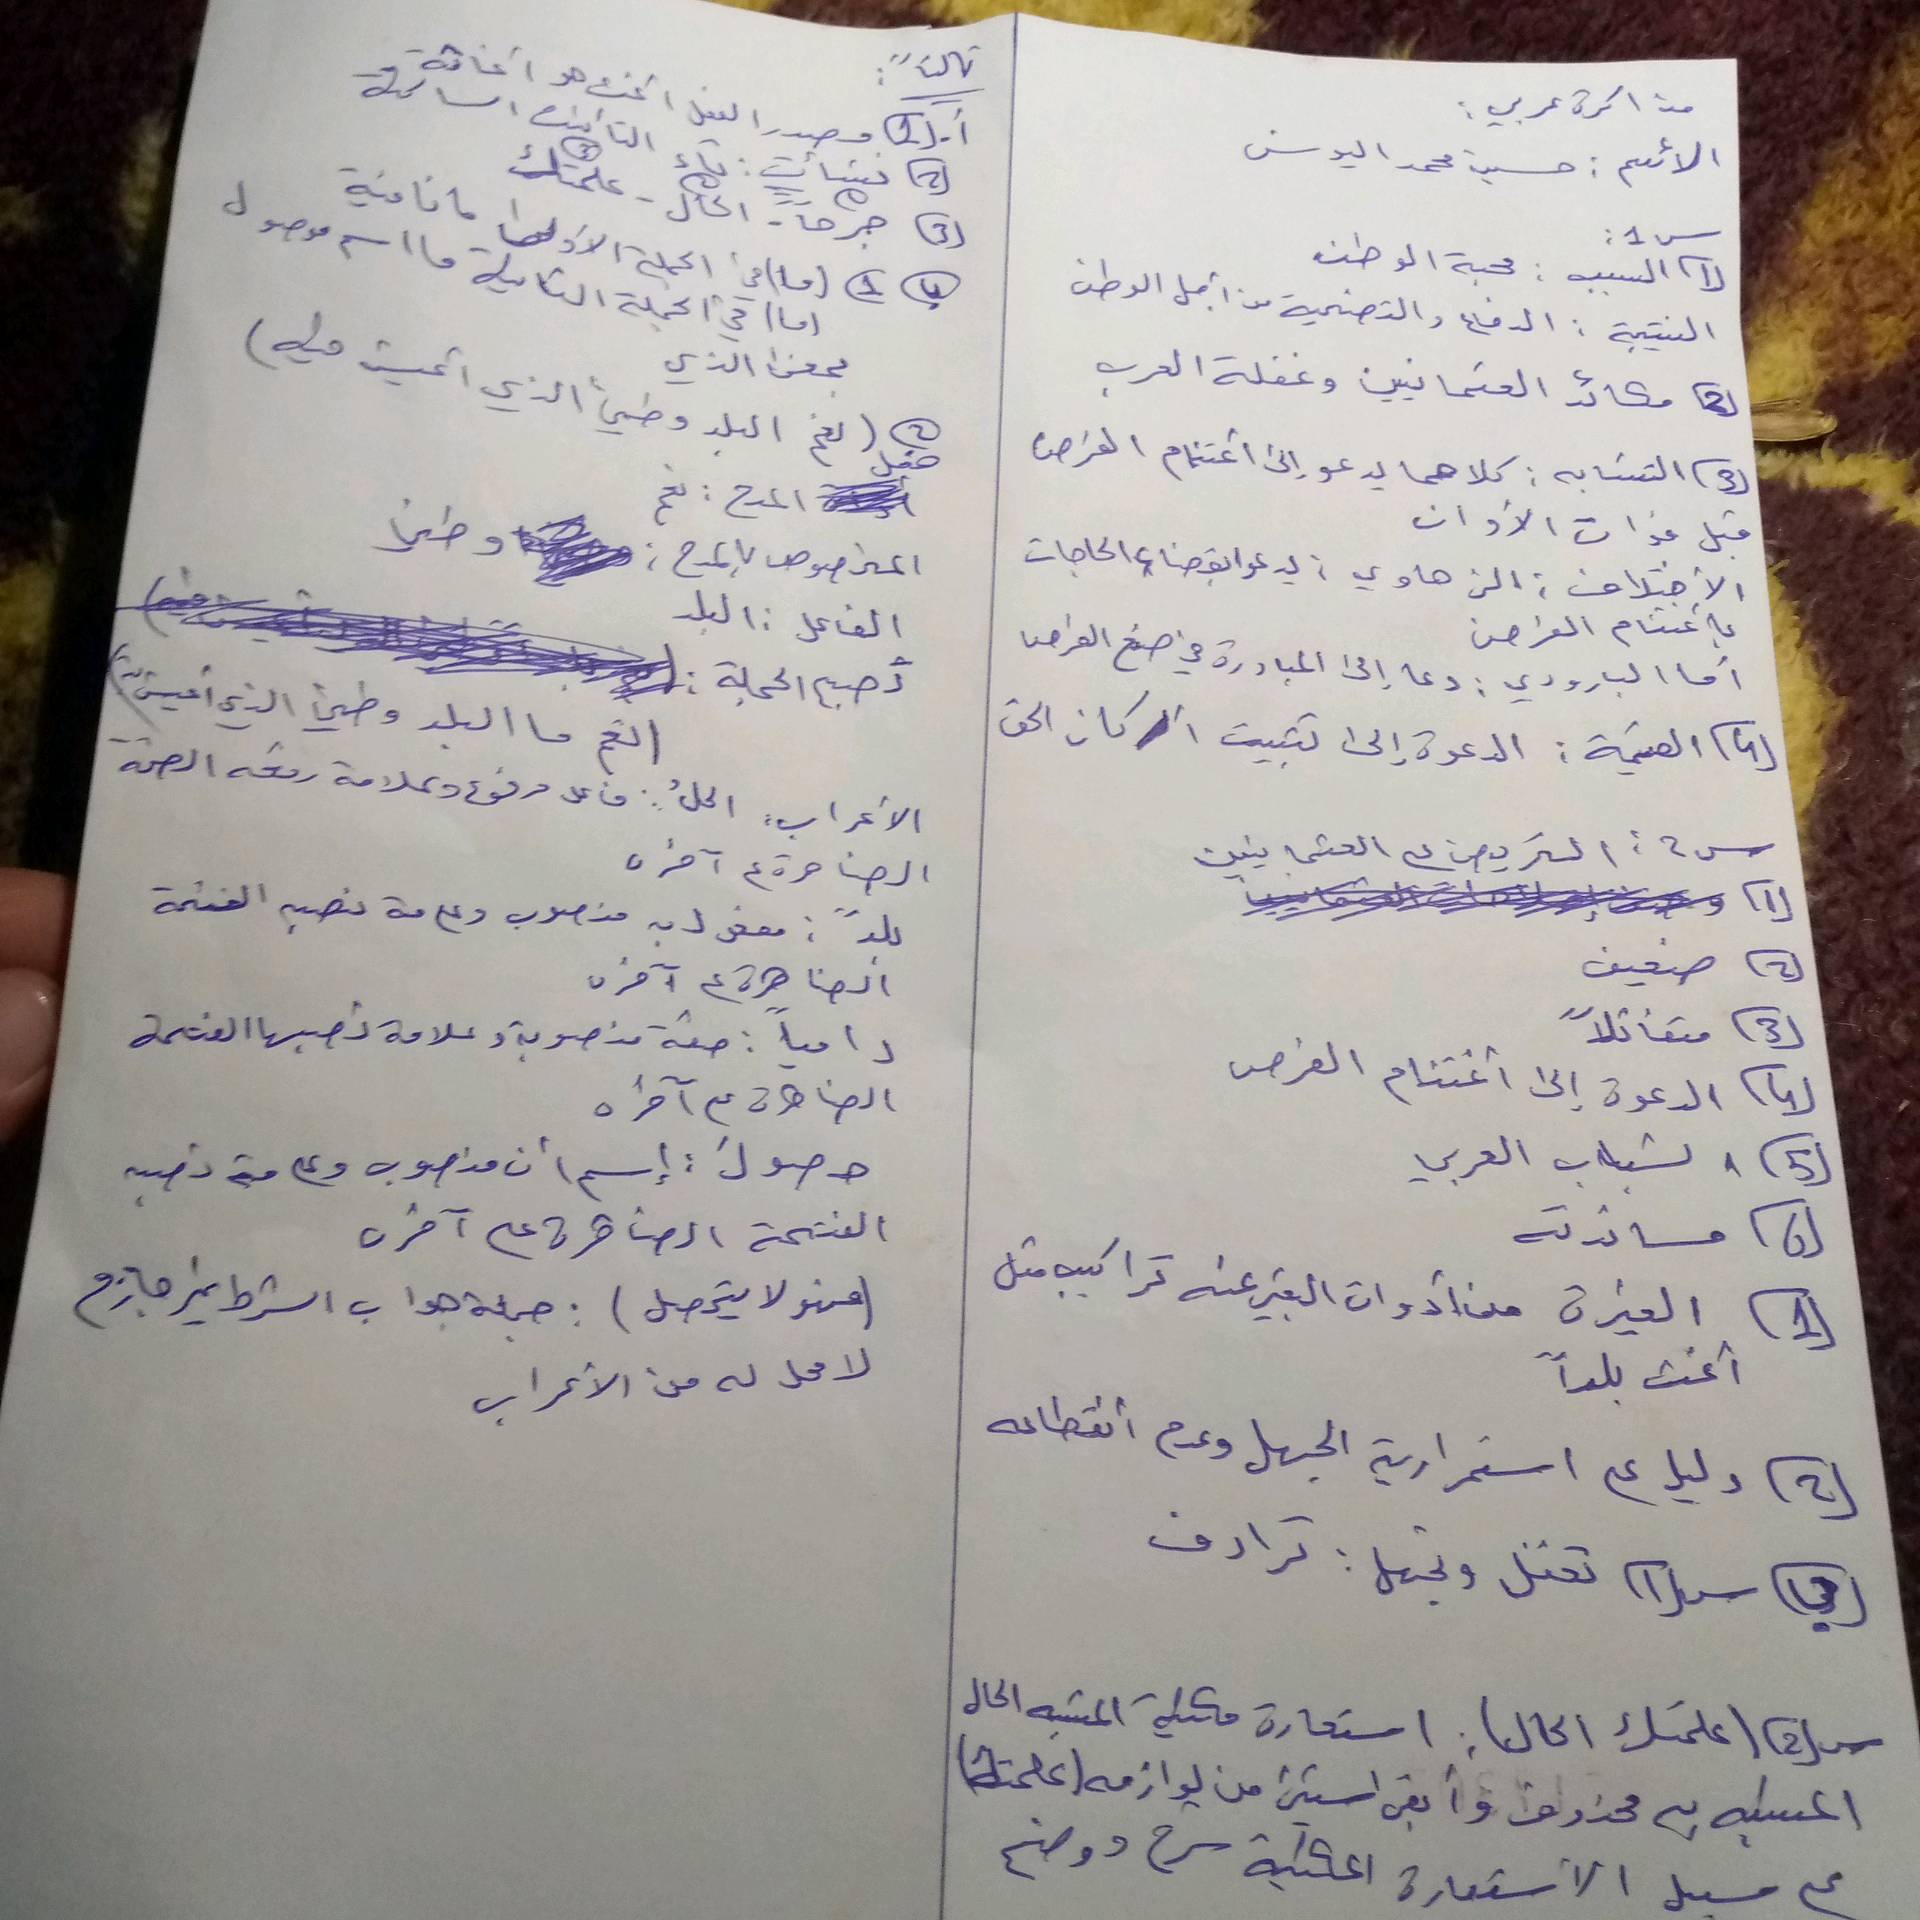 مذاكرة عربي :
الأسم : حسين محمد اليوسف
س1 :
(1) السبب : محبة الوطن
النتيجة : الدفاع والتضحية من أجل الوطن
(2) مكائد العثمانيين وغفلة العرب
(3) التشابه : كلاهما يدعو إلى أغتنام الفرص
قبل فوات الأوان
الأختلاف : الزهاوي : يدعوا بقضاء الحاجات
بإغتنام الفرص
أما البارودي : دعا إلى المبادرة في الفرص
(4) القيمة : الدعوة إلى تثبيت أركان الحق
س2 : العثمانيين
(1)
(2) ضعيف
(3) متفائلاً
(4) الدعوة إلى أغتنام الفرص
(5) الشباب العربي
(6) مساندته
(1) الغيرة من أدوات التعبير عنه تراكيب مثل
أغث بلداً
(2) دليل على استمرارية الجهل وعدم أنقطاعه
(3) س(1) تغفل وتجهل : ترادف
س(2) (علمتك الحال) : استعارة مكنية المشبه الحال
المشبه به محذوف وأبقى شيئ من لوازمه (علمتك)
على سبيل الأستعارة المكنية شرح ووضح
ثالثاً :
أ- (1) مصدر الفعل أغث هو أغاثة
(2) نشأت : تاء التأنيث الساكنة
(3) جرحاً - الحال - علمتك
(4) 1 (ما) في الجملة الأولى ما نافية
(ما) في الجملة الثانية ما اسم موصول
بمعنى الذي
(2) (نعم البلد وطني الذي أعيش فيه)
فعل المدح : نعم
المخصوص بالمدح : وطني
الفاعل : البلد
تصبح الجملة :
(نعم ما البلد وطني الذي أعيش
الأعراب : الحالُ : فاعل مرفوع وعلامة رفعه الضمة
الضاهرة على آخره
بلداً : مفعول به منصوب وعلامة نصبه الفتحة
الضاهرة على آخره
دامياً : صفة منصوبة وعلامة نصبها الفتحة
الضاهرة على آخره
حصولَ : إسم أن منصوب وعلامة نصبه
الفتحة الضاهرة على آخره
(فهو لا يتحصل) : جملة جواب الشرط غير جازم
لا محل له من الأعراب